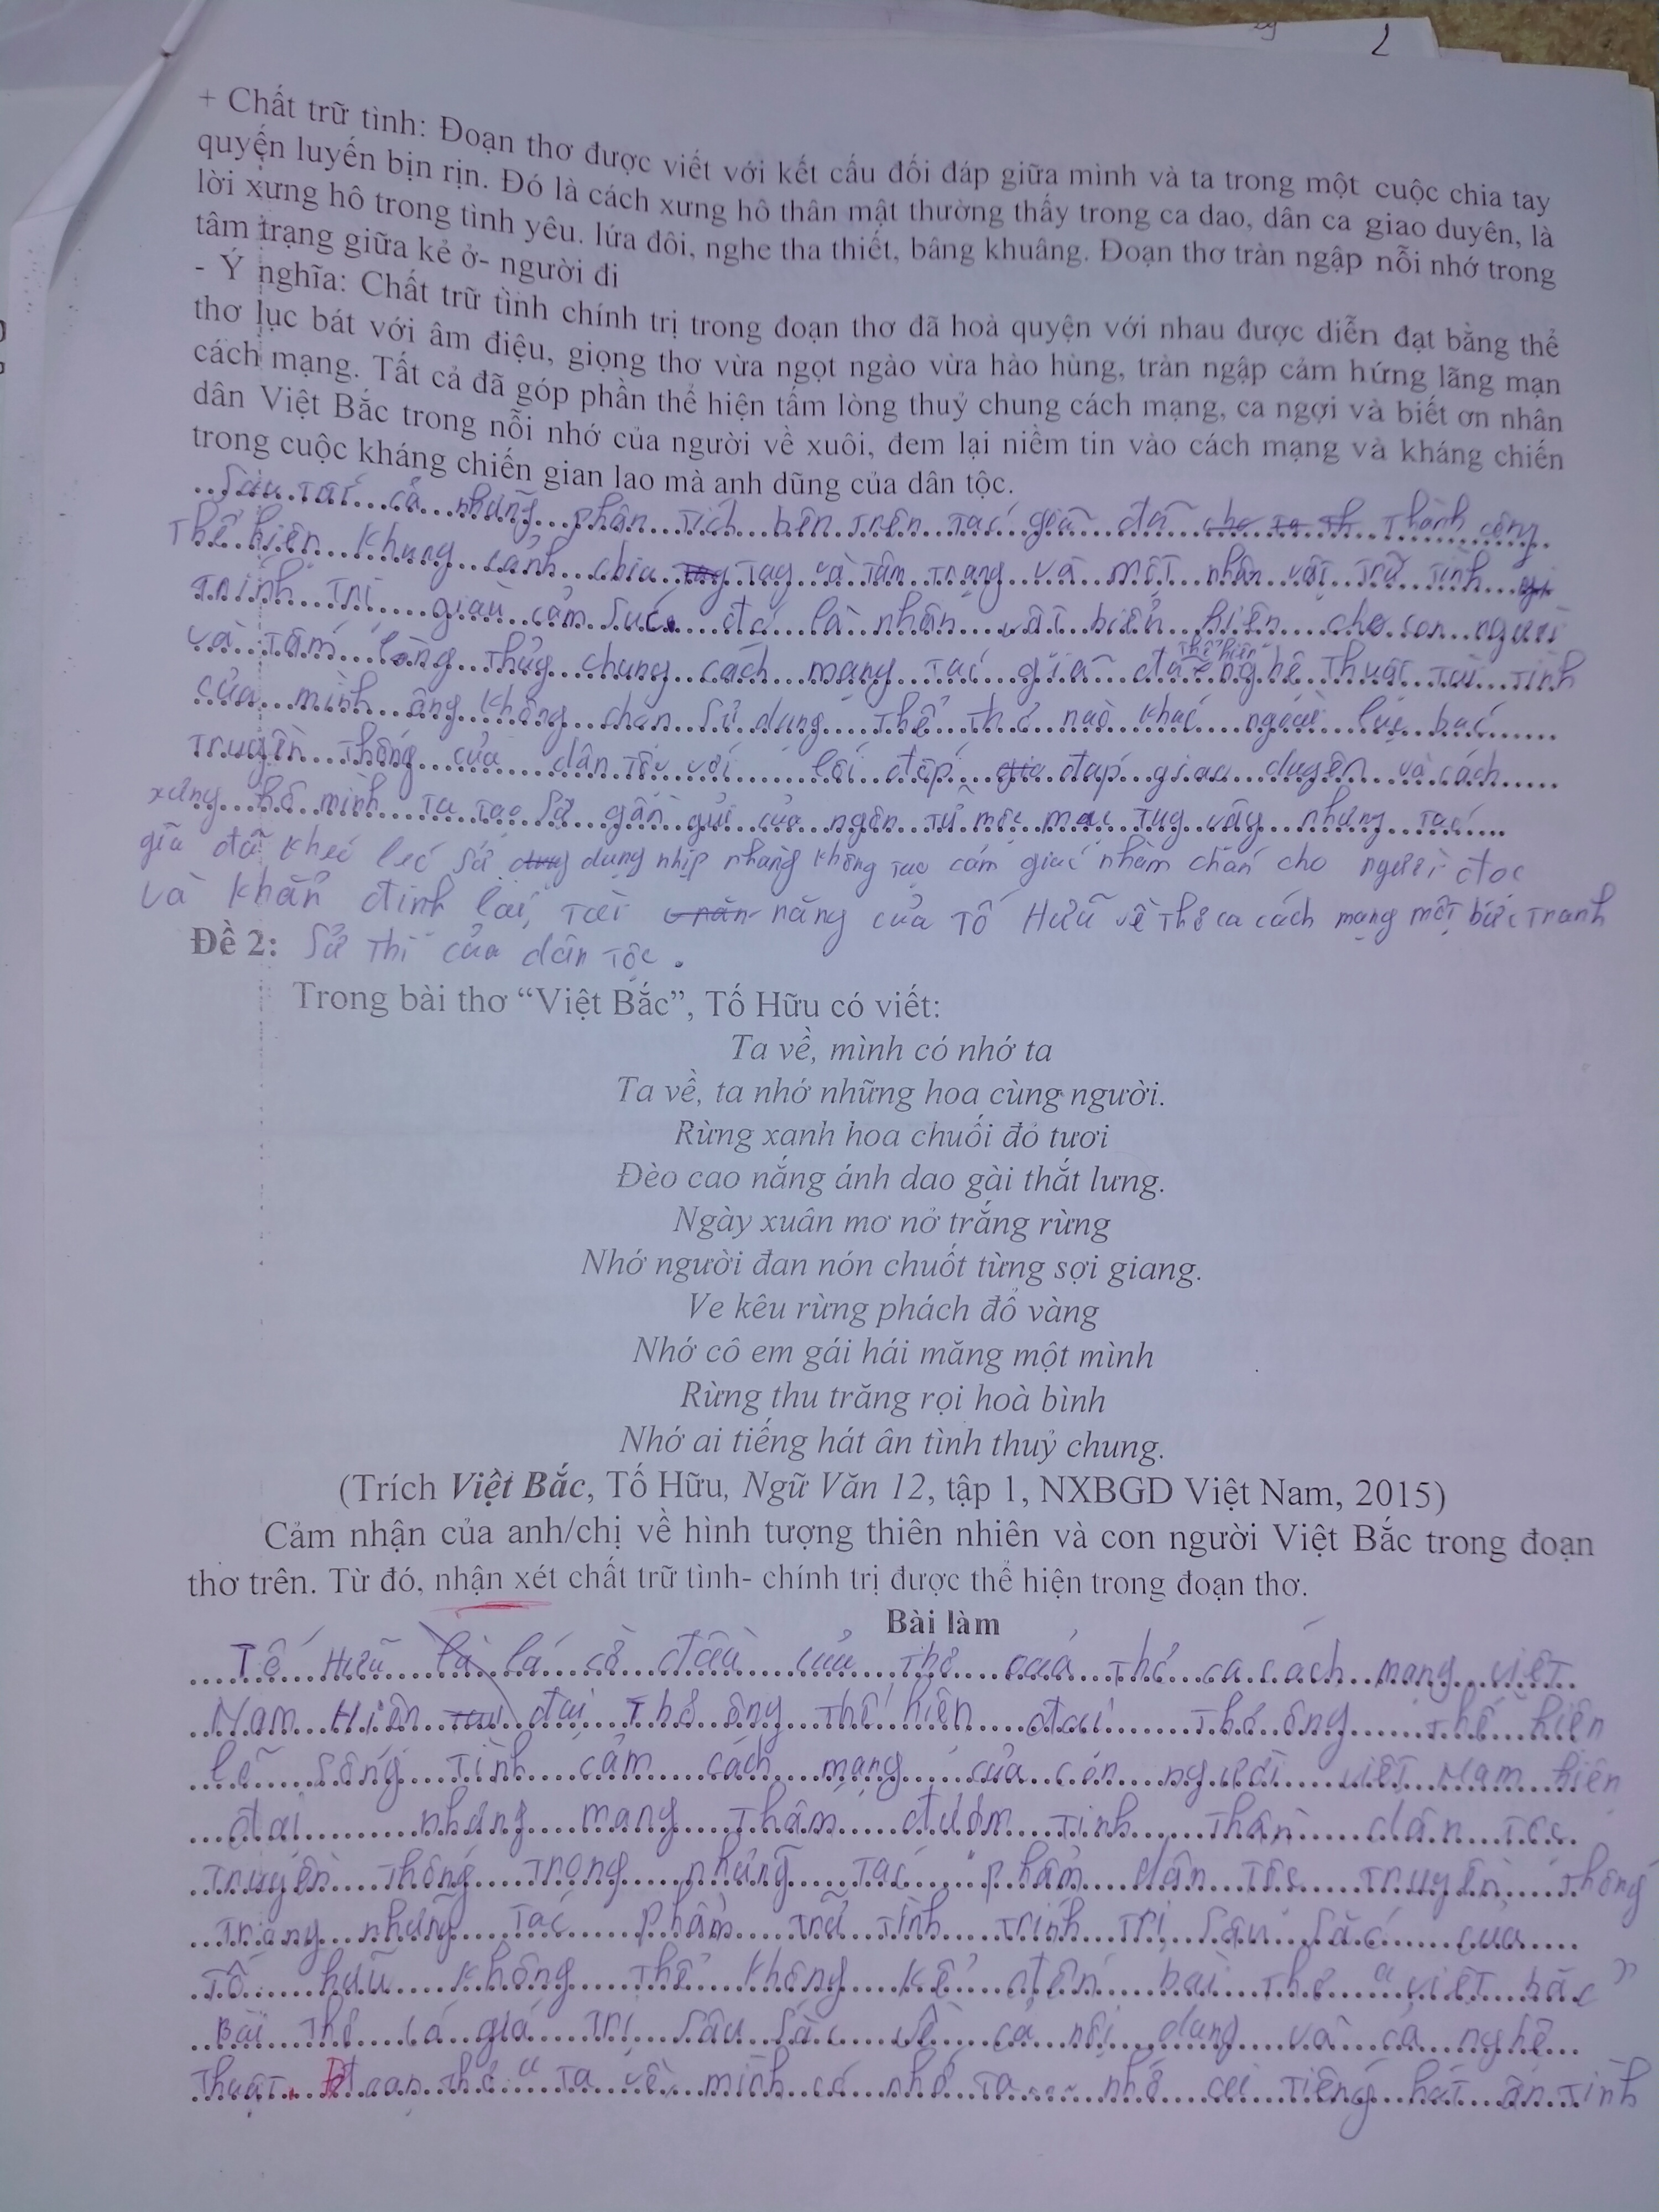 2
+ Chất trữ tình: Đoạn thơ được viết với kết cấu đối đáp giữa mình và ta trong một cuộc chia tay
quyến luyến bịn rịn. Đó là cách xưng hô thân mật thường thấy trong ca dao, dân ca giao duyên, là
lời xưng hô trong tình yêu. lứa đôi, nghe tha thiết, bâng khuâng. Đoạn thơ tràn ngập nỗi nhớ trong
tâm trạng giữa kẻ ở- người đi
- Ý nghĩa: Chất trữ tình chính trị trong đoạn thơ đã hoà quyện với nhau được diễn đạt bằng thể
thơ lục bát với âm điệu, giọng thơ vừa ngọt ngào vừa hào hùng, tràn ngập cảm hứng lãng mạn
cách mạng. Tất cả đã góp phần thể hiện tấm lòng thuỷ chung cách mạng, ca ngợi và biết ơn nhân
dân Việt Bắc trong nỗi nhớ của người về xuôi, đem lại niềm tin vào cách mạng và kháng chiến
trong cuộc kháng chiến gian lao mà anh dũng của dân tộc.
Sau tất cả những phân tích bên trên tác giả đã thành công
thể hiện khung cảnh chia tay và tâm trạng và một nhân vật trữ tình
trính trị giàu cảm súc đó là nhân vật biểu hiện cho con người
và tấm lòng thủy chung cách mạng tác giả đã thể hiện nghệ thuật tài tình
của mình ông không chọn sử dụng thể thơ nào khác ngoài lục bác
truyền thống của dân tộc với lối đáp giao duyên và cách
xưng hô mình ta tạo sự gần gũi của ngôn từ mộc mạc tuy vậy nhưng tác
giã đã kheó leó sử dụng nhịp nhàng không tạo cảm giác nhàm chán cho người đọc
và khẳn định lại tài năng của Tố Hữu về thơ ca cách mạng một bức tranh
sử thi của dân tộc.
Đề 2:
Trong bài thơ “Việt Bắc”, Tố Hữu có viết:
Ta về, mình có nhớ ta
Ta về, ta nhớ những hoa cùng người.
Rừng xanh hoa chuối đỏ tươi
Đèo cao nắng ánh dao gài thắt lưng.
Ngày xuân mơ nở trắng rừng
Nhớ người đan nón chuốt từng sợi giang.
Ve kêu rừng phách đổ vàng
Nhớ cô em gái hái măng một mình
Rừng thu trăng rọi hoà bình
Nhớ ai tiếng hát ân tình thuỷ chung.
(Trích Việt Bắc, Tố Hữu, Ngữ Văn 12, tập 1, NXBGD Việt Nam, 2015)
Cảm nhận của anh/chị về hình tượng thiên nhiên và con người Việt Bắc trong đoạn
thơ trên. Từ đó, nhận xét chất trữ tình- chính trị được thể hiện trong đoạn thơ.
Bài làm
Tố Hữu là lá cờ đầu của thơ thơ ca cách mạng việt
Nam Hiện đại Thơ ông thể hiện đại thơ ông thể hiện
lẽ sống tình cảm cách mạng của con người việt Nam hiện
đại nhưng mang thấm đượm tinh thần dân tộc
truyền thống trong những tác phẩm dân tộc truyền thống
trong những tác phẩm trữ tình trính trị sâu sắc của
tố hữu không thể không kể đến bài thơ “việt bắc”
Bài thơ có giá trị sâu sắc về cả nội dung và cả nghệ
thuật. Đoạn thơ “ta về mình có nhớ ta ... nhớ ai tiếng hát ân tình